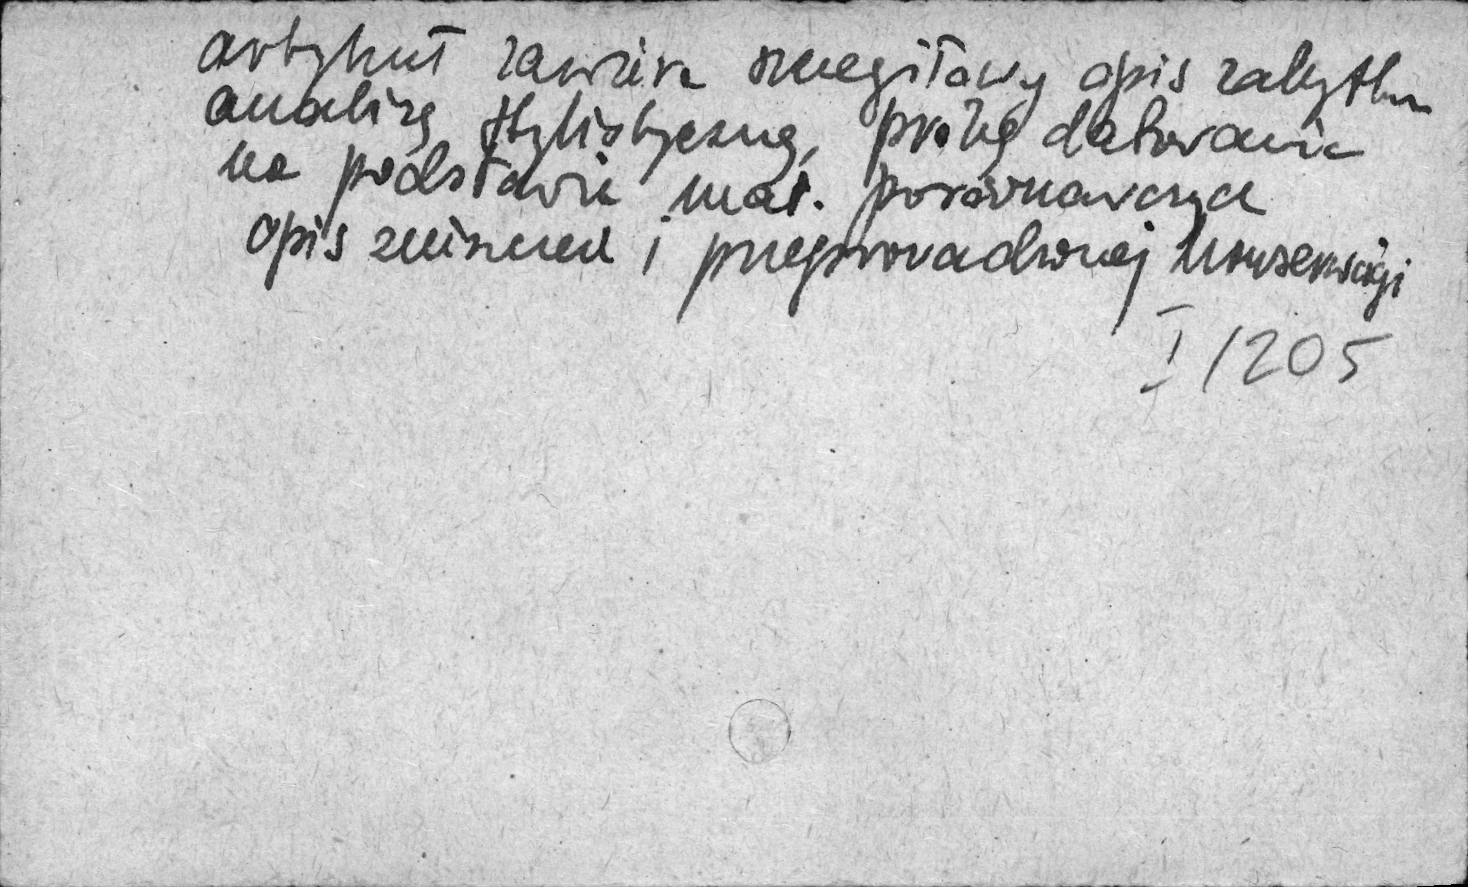 artykuł zawiera szczegółowy opis zabytku
analizę stylistyczną, próbę datowania
na podstawie mat. porównawczych
opis zniszczeń i przeprowadzonej konserwacji
I/205